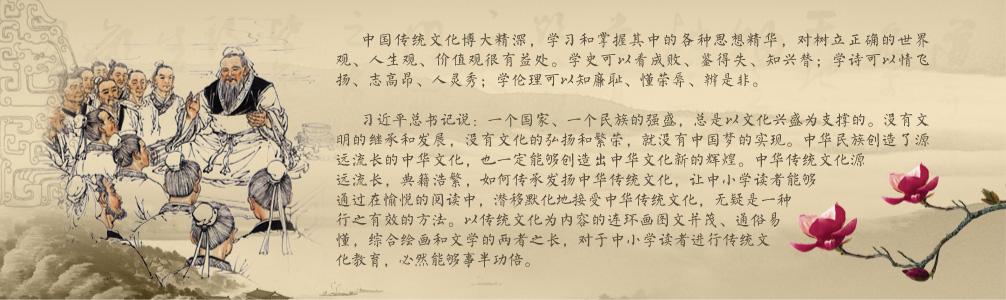 中国传统文化博大精深，学习和掌握其中的各种思想精华，对树立正确的世界
观、人生观、价值观很有益处。学史可以看成败、鉴得失、知兴替；学诗可以情飞
扬、志高昂、人灵秀；学伦理可以知廉耻、懂荣辱、辨是非。
习近平总书记说：一个国家、一个民族的强盛，总是以文化兴盛为支撑的。没有文
明的继承和发展，没有文化的弘扬和繁荣，就没有中国梦的实现。中华民族创造了源
远流长的中华文化，也一定能够创造出中华文化新的辉煌。中华传统文化源
远流长，典籍浩繁，如何传承发扬中华传统文化，让中小学读者能够
通过在愉悦的阅读中，潜移默化地接受中华传统文化，无疑是一种
行之有效的方法。以传统文化为内容的连环画图文并茂、通俗易
懂，综合绘画和文学的两者之长，对于中小学读者进行传统文
化教育，必然能够事半功倍。